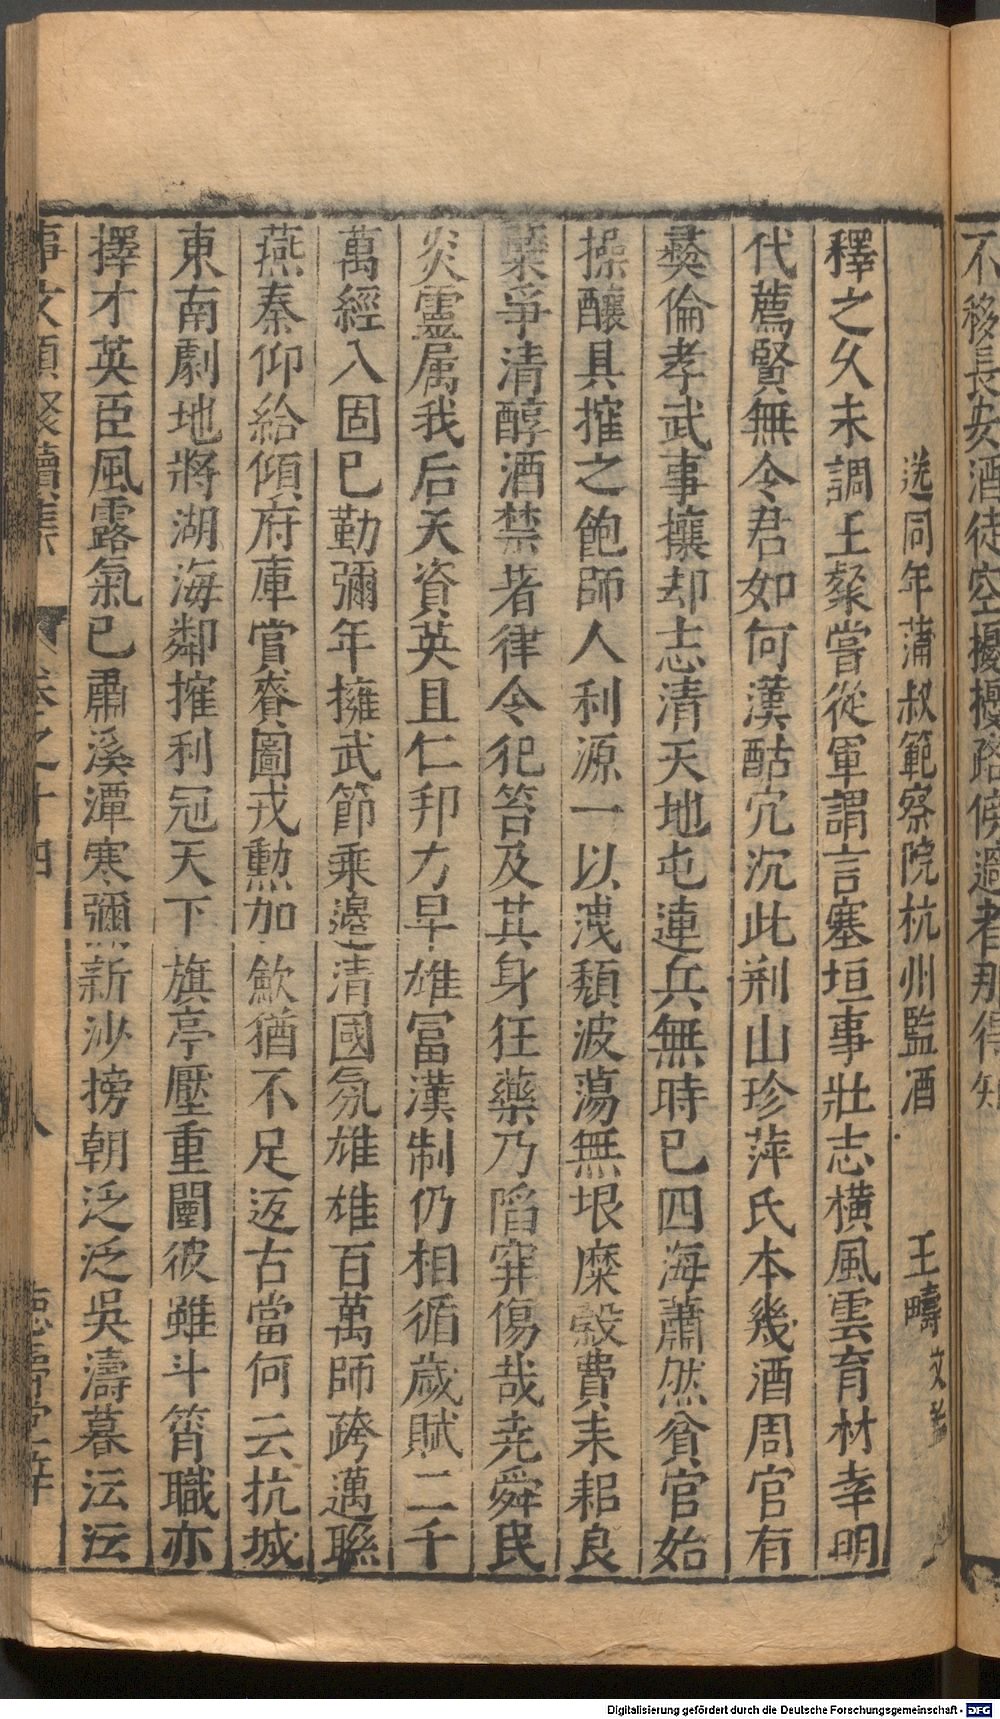 不移長安酒徒空擾擾路傍過者那得知
送同年蒲叔範察院杭州監酒 王疇 文鑑
釋之久未調王粲嘗從軍謂言塞垣事壯志橫風雲育材幸明
代薦賢無令君如何漢酤宂沉此荊山珍萍氏本幾酒周官有
彜倫孝武事攘却志清天地屯連兵無時已四海蕭然貧官始
操釀具搉之飽師人利源一以洩頹波蕩無垠糜穀費耒耜良
蘖爭清醇酒禁著律令犯笞及其身狂藥乃陷穽傷哉堯舜民
炎靈属我后天資英且仁邦力早雄冨漢制仍相循歲賦二千
萬經入固已勤彌年擁武節乘邊清國氛雄雄百萬師跨邁聮
燕秦仰給傾府庫當賚圖戎勲加歛猶不足返古當何云抗城
東南劇地將湖海鄰搉利冠天下旗亭壓重闉彼雖斗筲職亦
擇才英臣風露氣已肅溪潭寒彌新沙塝朝泛泛吳濤暮沄沄
事文類聚續集 卷之十四 八
Digitalisierung gefördert durch die Deutsche Forschungsgemeinschaft - DFG